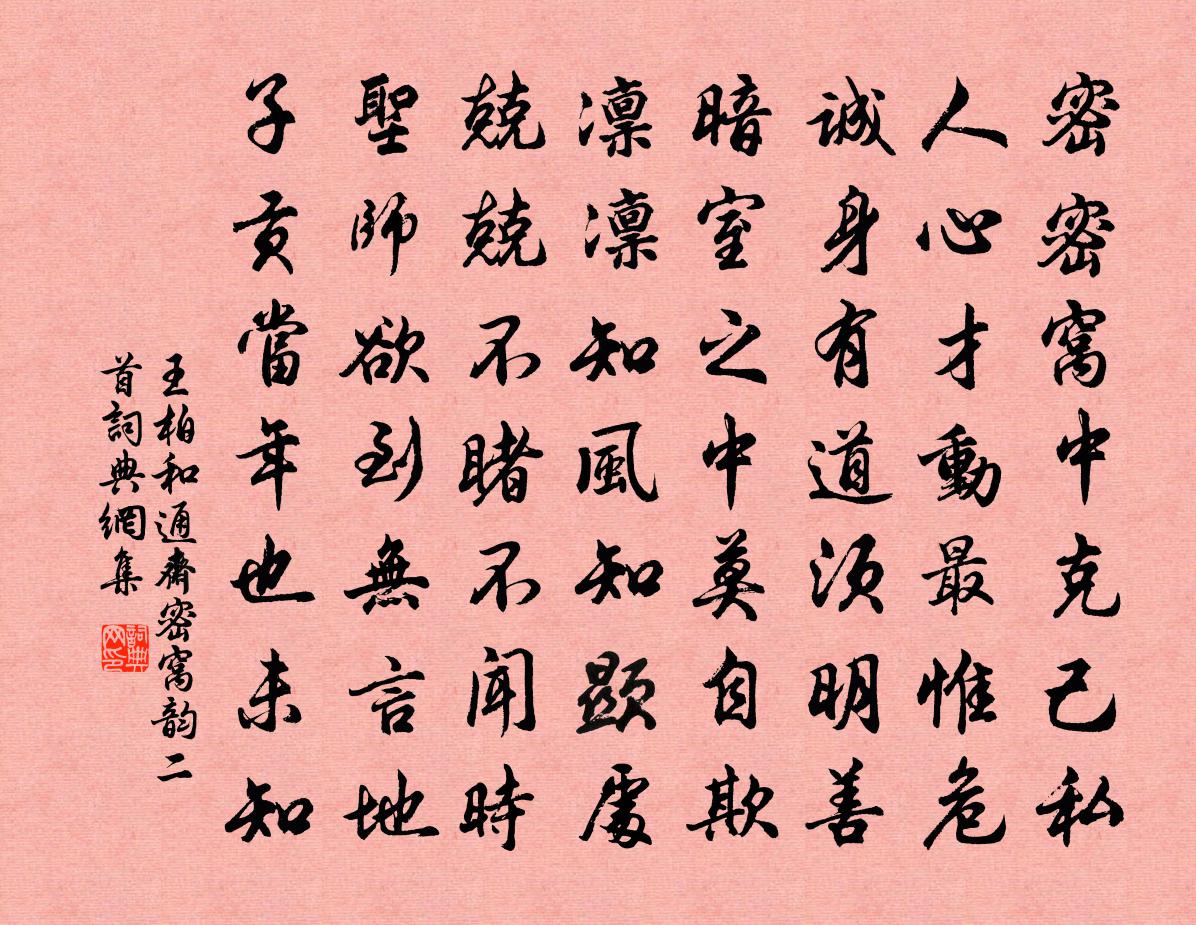 密密窩中克己私
人心才動最惟危
誠身有道須明善
暗室之中莫自欺
凛凛知風知顯處
兢兢不睹不聞時
聖師欲到無言地
子貢當年也未知
王柏和通齋密窩韵二
首詞典網集
詞典
网印